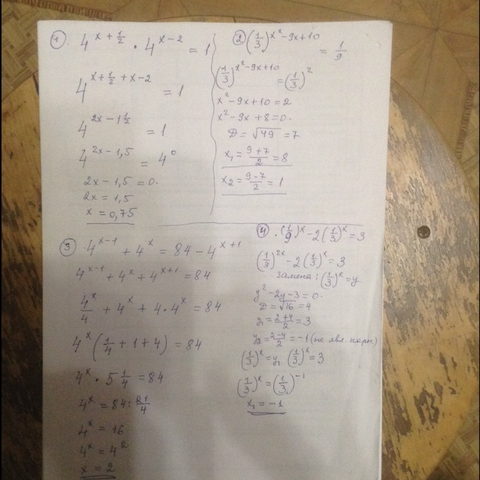 ① 4^(x+1/2) · 4^(x-2) = 1
4^(x+1/2+x-2) = 1
4^(2x-1 1/2) = 1
4^(2x-1,5) = 4^0
2x-1,5=0.
2x=1,5
x=0,75
2 (1/3)^(x²-9x+10) = 1/9
(1/3)^(x²-9x+10) = (1/3)^2
x²-9x+10=2
x²-9x+8=0.
D=√49=7
x₁=(9+7)/2=8
x₂=(9-7)/2=1
③ 4^(x-1) + 4^x = 84 - 4^(x+1)
4^(x-1) + 4^x + 4^(x+1) = 84
4^x/4 + 4^x + 4·4^x = 84
4^x (1/4+1+4) = 84
4^x · 5 1/4 = 84
4^x = 84 : 21/4
4^x = 16
4^x = 4^2
x = 2
④ · (1/9)^x - 2(1/3)^x = 3
(1/3)^(2x) - 2(1/3)^x = 3
замена: (1/3)^x = y
y²-2y-3=0.
D=√16=4
y₁=(2+4)/2=3
y₂=(2-4)/2=-1 (не явл. корн.)
(1/3)^x=y₁ (1/3)^x=3
(1/3)^x=(1/3)^(-1)
x₁=-1